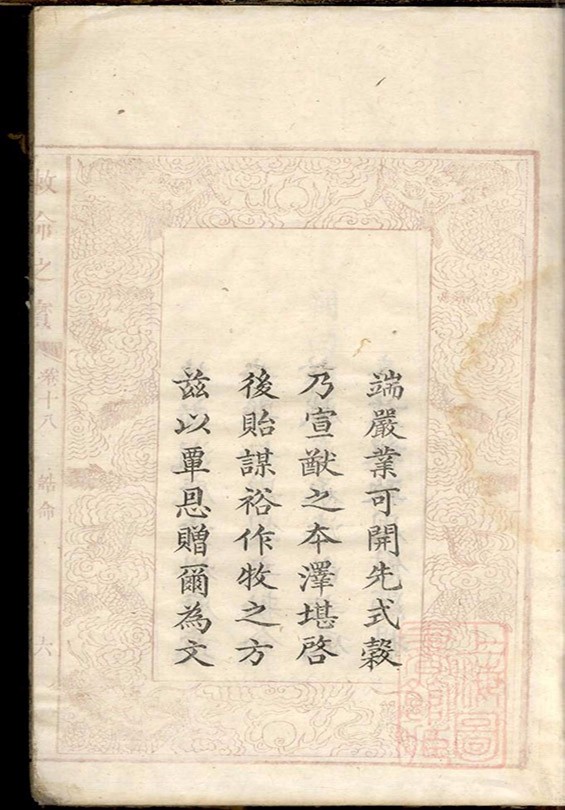 端嚴業可開先式穀
乃宣猷之本澤堪啓
後貽謀裕作牧之方
茲以覃恩贈爾為文
敕命之寶
卷十八
誥命
六
上海圖書館藏